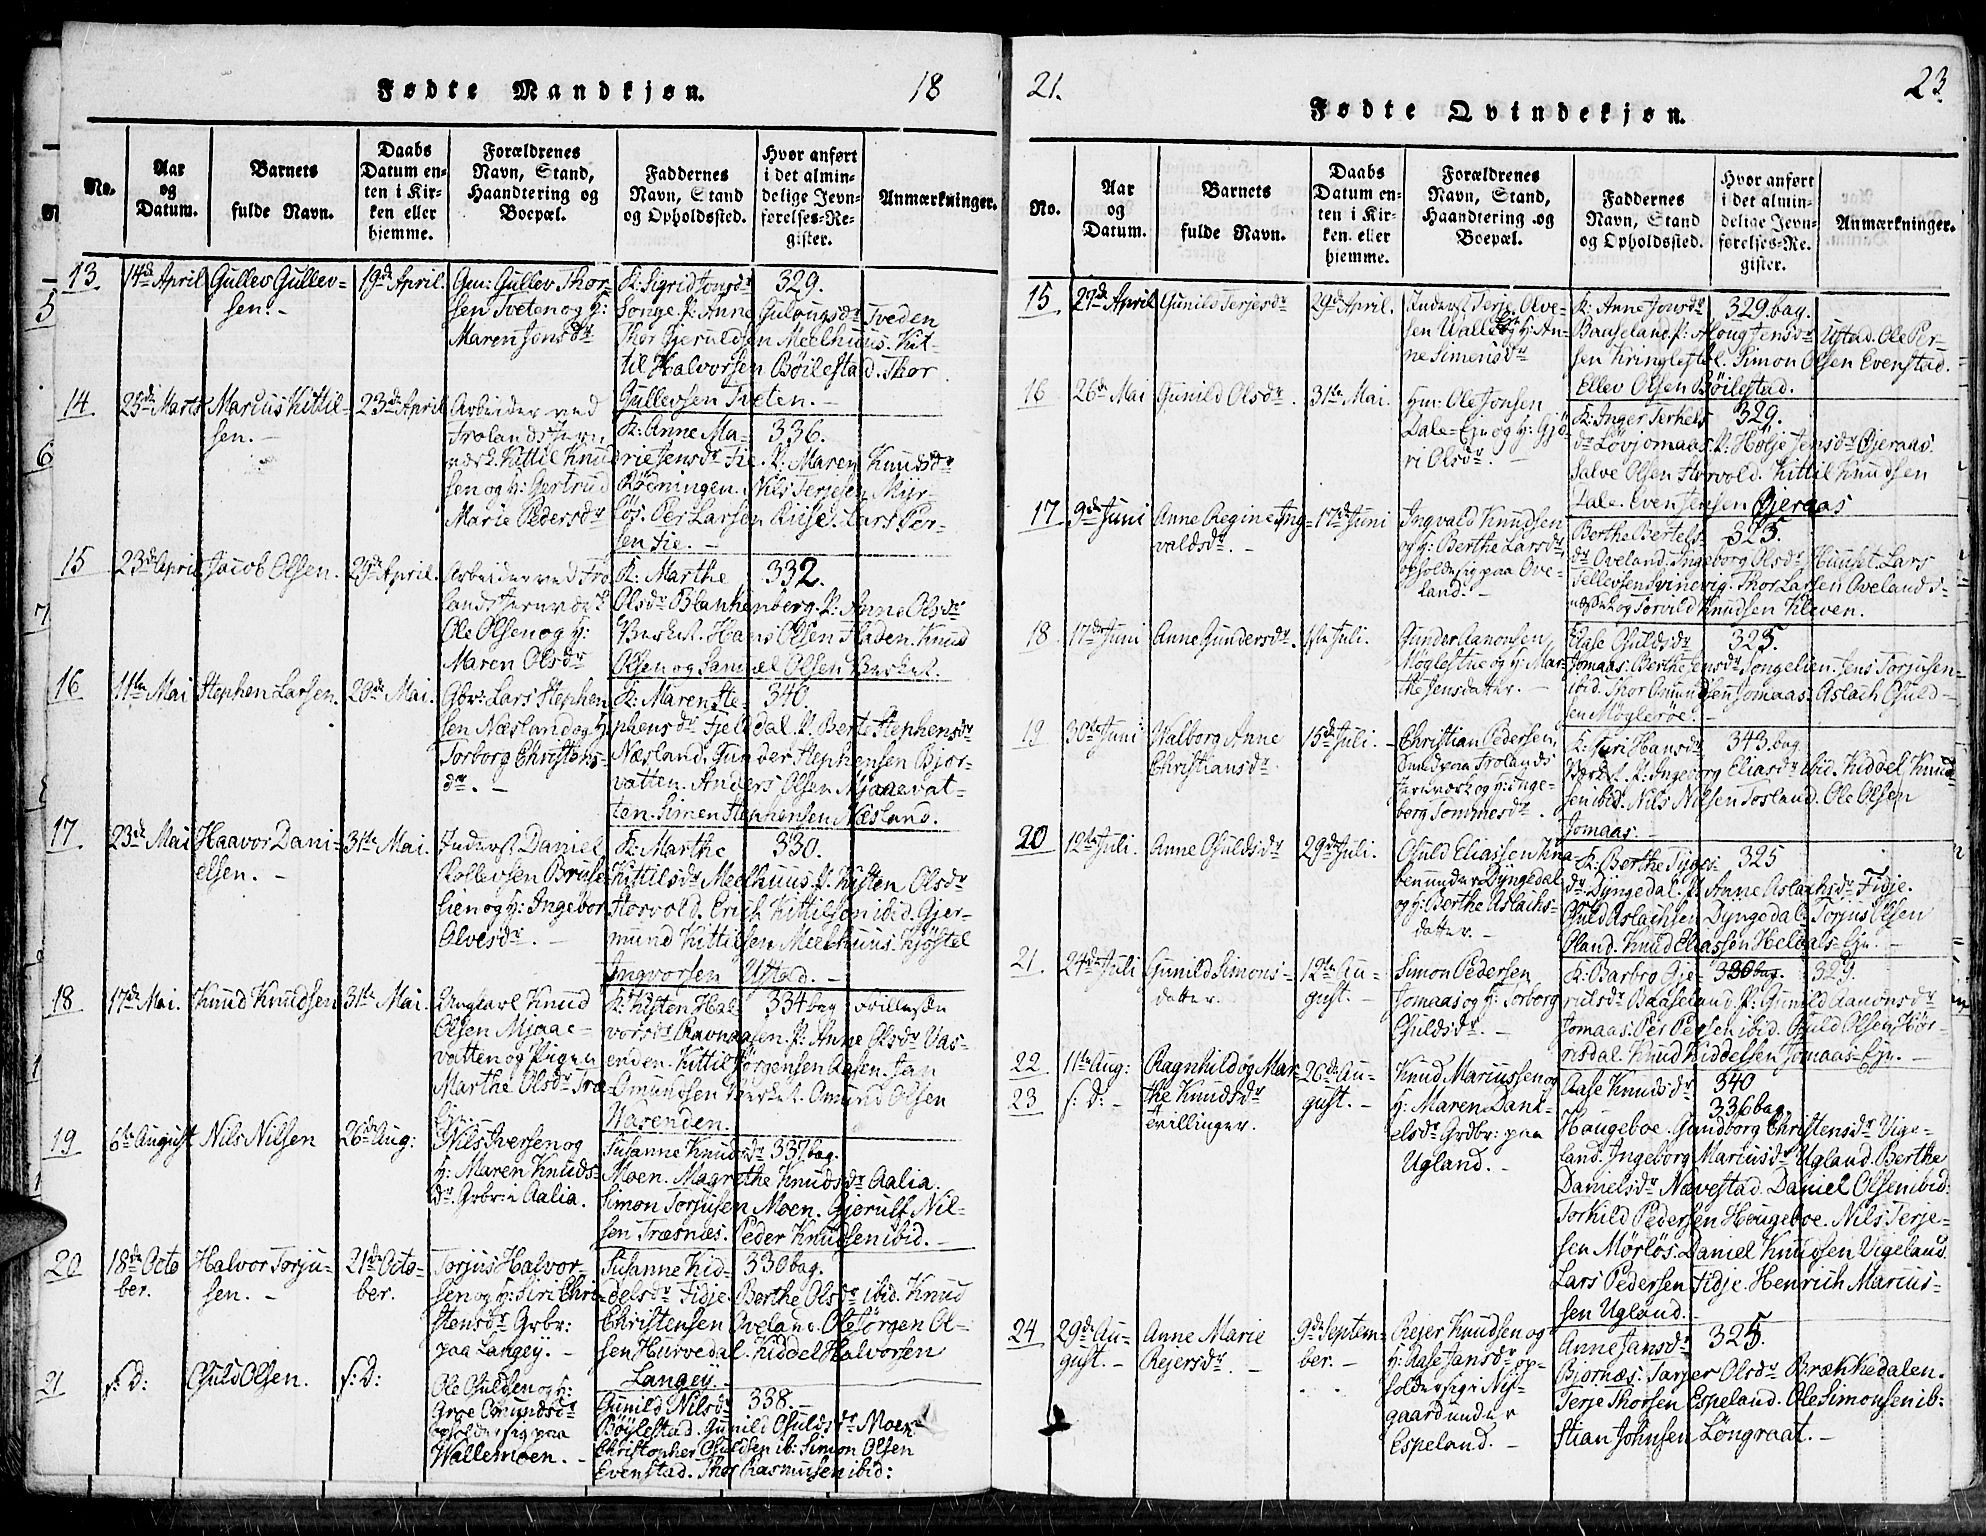 Fødte Mandkjøn.
18
No.
Aar og Datum.
Barnets fulde Navn.
Daabs Datum enten i Kirken eller hjemme.
Forældrenes Navn, Stand, Haandtering og Boepæl.
Faddernes Navn, Stand og Opholdssted.
Hvor anført i det almindelige Jevnførelses-Register.
Anmærkninger.
13
14de April
Gullev Gullev-
sen. -
19de April.
Gm: Gullev Thor-
sen Tveten og H:
Maren Jonsdr
K: Sigrid Jonsdr
Songe. P: Anne Gulougsdr Tveden
Thor Gjeruldsen Meelhuus. Kit-
til Halvorsen Böilestad. Thor
Gullevsen Tveten. -
329.
14
25de Marts
Marcus Kittil-
sen. -
23de April
Arbeider ved
Frolands Jern-
værk Kittil Knud
sen og H: Gertrud
Marie Pedersdr
K: Anne Ma-
rie Jensdr Fie. P: Maren Knudsdr
Rödningen. Nils Terjesen Myr-
lös. Per Larsen Riise. Lars Per-
sen Fie. -
336.
15
23de April
Jacob Olsen.
29de April.
Arbeider ved Fro
lands Jernværk
Ole Olsen og H:
Maren Olsdr
K: Marthe
Olsdr Blankenberg. P: Anne Olsdr
Værket. Hans Olsen Fladen. Knud
Olsen og Samuel Olsen Værket.
332.
16
11te Mai
Stephen Larsen.
20de Mai.
Gbr: Lars Stephen
sen Næsland og H:
Torborg Christens-
dr. -
K: Maren Ste-
phensdr Fjeldal. P. Berte Stephensdr
Næsland. Gunder Stephensen Bjor-
vatten. Anders Olsen Mjaavat-
ten. Simen Stephensen Næsland.
340.
17
23de Mai
Haavor Dani-
elsen. -
31te Mai.
Inderst Daniel
Rollevsen Bruse-
lien og H: Ingebor
Olvesdr. -
K: Marthe
Kittilsdr Meelhuus. P. Kisten Olsdr
Storvold. Erich Kittilsen ibid. Gjer-
mund Kittilsen Meelhuus. Kjöstel
Ingvorsen Ustad. -
330.
18
17de Mai.
Knud Knudsen
31te Mai.
Ungkarl Knud
Olsen Mjaae-
vatten og Pigen
Marthe Olsdr Fra-
K: Kisten Hal
vorsdr Ravnaasen. P: Anne Olsdr Vas-
enden. Kittil Jörgensen Aasen. Jan
Omundsen Værket. Omund Olsen
Vasenden.
334 bag
19
6te August
Nils Nilsen
26de Aug:
Nils Iversen og
H: Maren Knuds-
dr. Grbr: i Aalia.
Susanne Knudsdr
Moen. Magrethe Knudsdr Aalia.
Simon Torjusen Moen. Gjerulf Nil-
sen Træsnæs. Peder Knudsen ibid. -
337 bag.
20
18de Octo
ber.
Halvor Torju-
sen. -
21de Octo-
ber.
Torjus Halvor-
sen og H: Siri Chri-
stensdr Grbr:
paa Langey. -
Susanne Kid-
delsdr Fidje. Berthe Olsdr ibid. Knud
Christensen Oveland. Ole Jörgen Ol-
sen Hurvedal. Kiddel Halvorsen
Langey. -
330 bag.
21
s: D:
Osuld Olsen.
s: D:
Ole Osuldsen og H:
Groe Omundsdr
opholder sig paa
Wallemoen. -
Gunild Nilsdr
Böylestad. Gunild Osuldsdr Moen
Christopher Osuldsen ib: Simon Olsen
Evenstad. Thor Rasmusen ibid:
338. -
21.
23.
Fødte Qvindekjøn.
No.
Aar og Datum.
Barnets fulde Navn.
Daabs Datum enten i Kirken eller hjemme.
Forældrenes Navn, Stand, Haandtering og Boepæl.
Faddernes Navn, Stand og Opholdssted.
Hvor anført i det almindelige Jevnførelses-Register.
Anmærkninger.
15
27de April
Gunild Terjesdr
29de April.
Inderst Terje Olve-
sen Walle og H: An-
ne Simensdr
K: Anne Jonsdr
Bauseland. P: Aloug Jensdr Ustad. Ole Per-
sen Kringlestel. Simon Olsen Evenstad.
Ellev Olsen Böilestad.
329. bag.
16
26de Mai
Gunild Olsdr.
31te Mai.
Hm: Ole Jonsen
Dale-Eje og H: Gjö-
ri Olsdr. -
K: Inger Terkels
dr Lövjomaas. P: Holje Jensdr Bjeraas.
Salve Olsen Storvold. Kittil Knudsen
Dale. Even Jensen Bjeraas
329.
17
9de Juni
Anne Regine Ing-
valdsdr. -
17de Juni
Ingvald Knudsen
og H: Berthe Larsdr
opholder sig paa Ove-
land. -
Berthe Bertels
dr Oveland. Ingeborg Olsdr Huuset. Lars
Tellevsen Svinevig. Thor Larsen Ovelands-
næsset og Torvild Knudsen Kleven.
325.
18
17de Juni
Anne Gundersdr.
1ste Juli.
Gunder Aanonsen
Möglestue og H: Mar-
the Jensdatter. -
Aase Osuldsdr
Jomaas. Berthe Jensdr Songelien. Jens Torjusen-
ibid. Thor Omundsen Jomaas. Aslach Osuld-
sen Möglestue. -
325.
19
30te Juni
Walborg Anne
Christiansdr.
15de Juli.
Christian Pedersen,
Smed paa Frolands
Jernværk og H: Inge-
borg Tommesdr.
K: Turi Hansdr
Værket. P: Ingeborg Eliasdr ibid. Kiddel Knud-
sen ibid. Nils Nilsen Fosland. Ole Olsen
Jomaas. -
343. bag
20
12te Juli.
Anne Osuldsdr
29de Juli.
Osuld Eliassen Kna
ben under Dyngedal
og H: Berthe Aslachs-
datter. -
K: Berthe Tyges
dr Dyngedal. P: Anne Aslachsdr Fidje.
Osuld Aslachsen Dyngedal. Torjus Olsen
Oland. Knud Eliassen Heldals-Eje. -
325
21
24de Juli
Gunild Simons-
datter.
12te Au-
gust. -
Simon Pedersen
Jomaas og H: Torborg
Osuldsdr. -
K: Barbro Gje-
rulsdr Baaseland. P: Gunild Aanonsdr
Jomaas. Per Persen ibid. Osuld Olsen Hör-
risdal. Knud Kiddelsen Jomaas-Eje. -
330 bag.
329.
22
11te Aug:
Ragnhild og Mar-
20de Au-
gust. -
23
s: D: -
the Knudsdr
tvillinger.
Knud Mariussen og
H: Maren Dani-
elsdr Grdbr: paa
Ugland. -
Aase Knudsdr
Hougeboe. Gundborg Christensdr Vige-
land. Ingeborg Mariusdr Ugland. Berthe
Danielsdr Nævestad. Daniel Olsen ibid:
Torkild Pedersen Hougeboe. Nils Terje-
sen Mörlös. Daniel Knudsen Vigeland.
Lars Pedersen Fidje. Henrich Marius-
sen Ugland. -
340
336 bag.
24
29de Au-
gust. -
Anne Marie
Rejersdr. -
9de Septem-
ber. -
Rejer Knudsen og
H: Aase Jansdr op-
holder sig i Nis-
gaard under
Espeland. -
Anne Jansdr
Bjornæs. Tarjer Olsdr Brækkedalen.
Terje Thorsen Espeland. Ole Simonsen ib:
Stian Johnsen Löngraat. -
325.